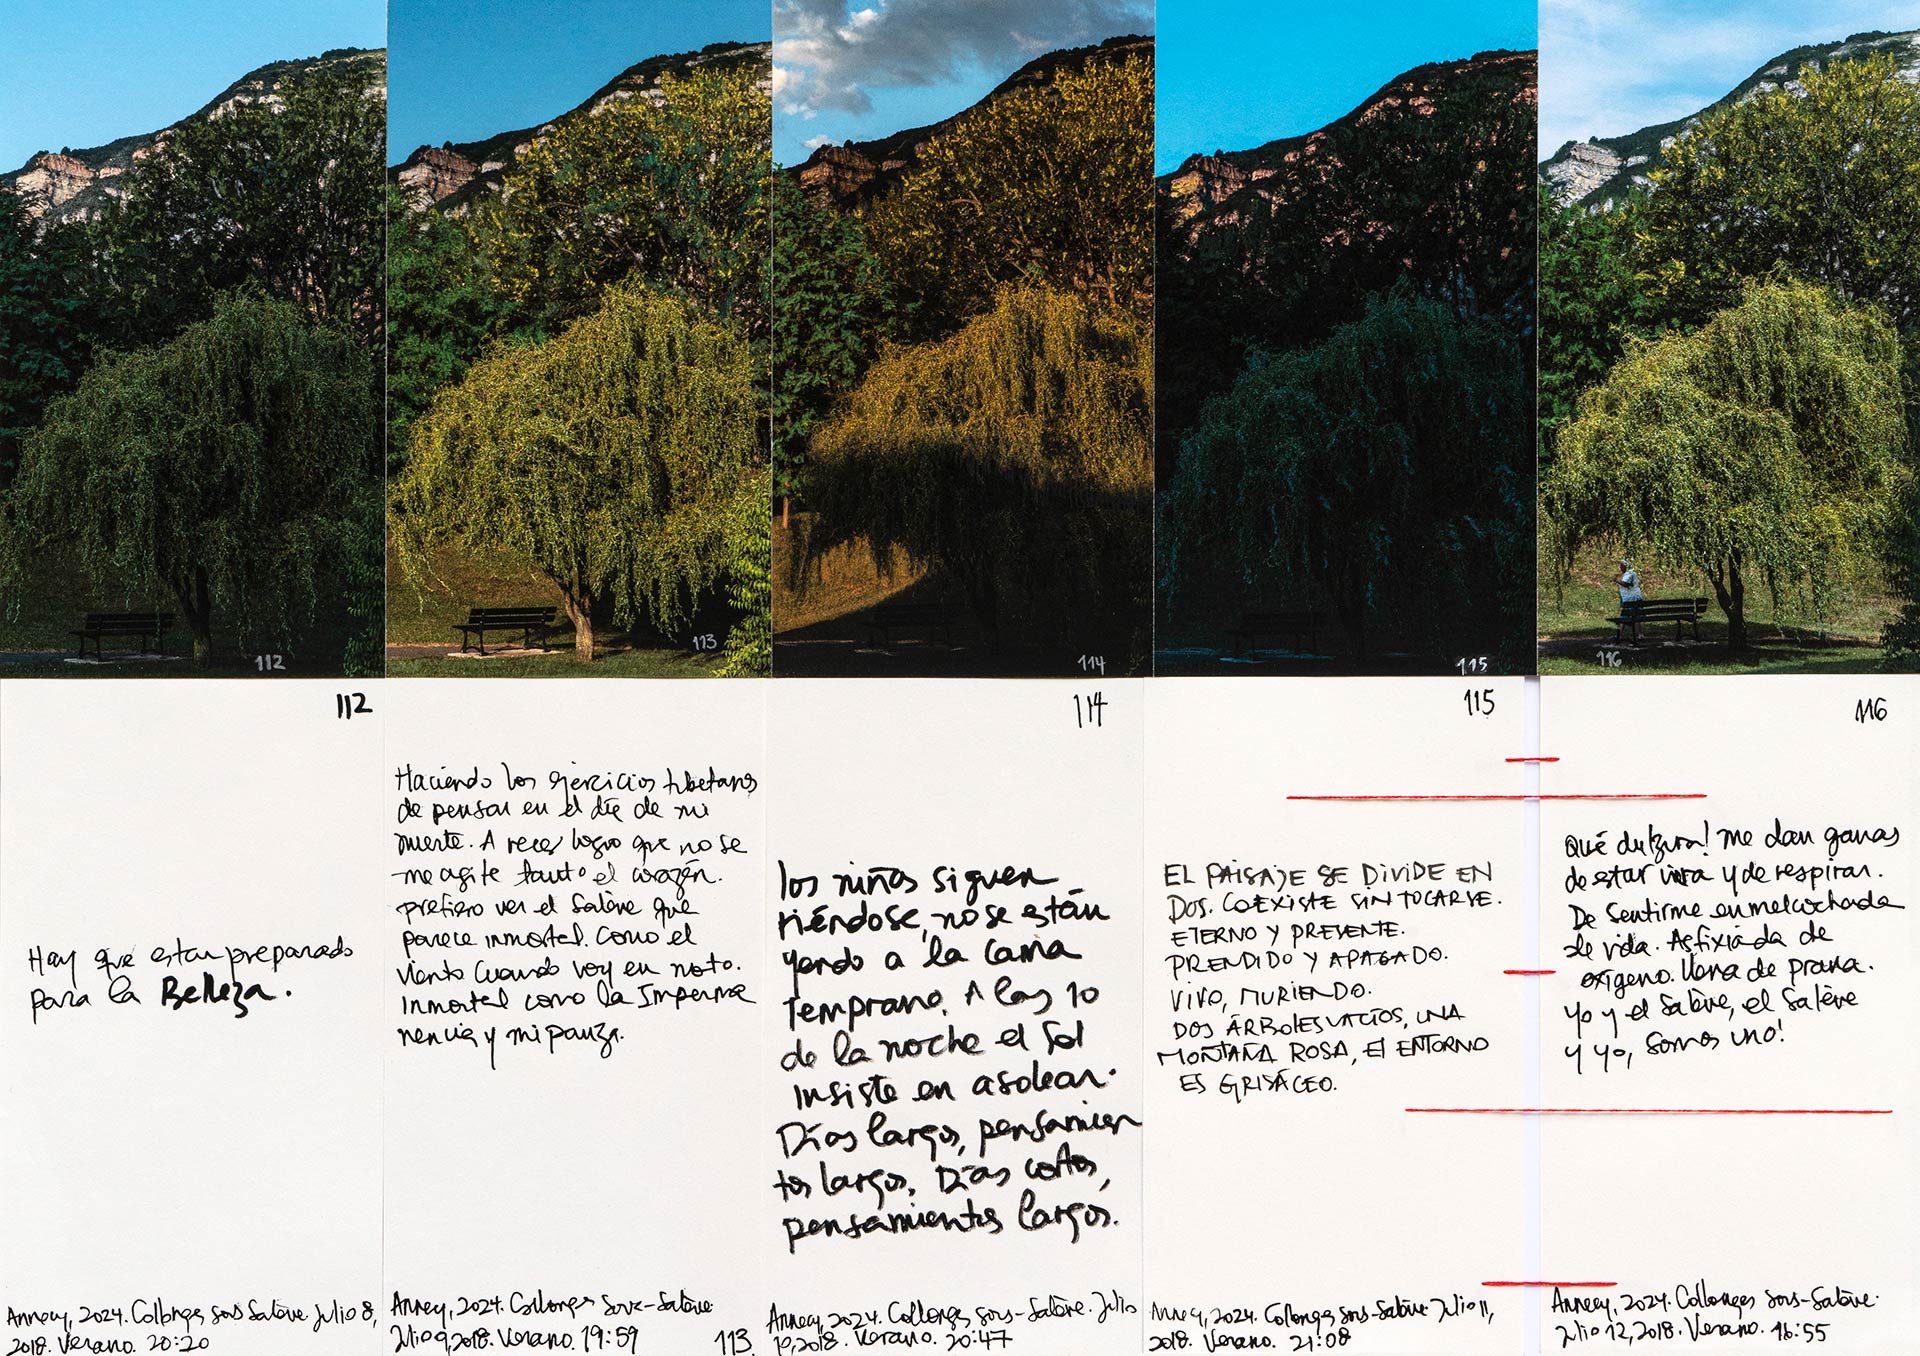 112
113
114
115
116
112
Hay que estar preparado
para la Belleza.
Annecy, 2024. Collonges sous Salève. Julio 8,
2018. Verano. 20:20
Haciendo los ejercicios tibetanos
de pensar en el día de mi
muerte. A veces logro que no se
me agite tanto el corazón.
prefiero ver el Salève que
parece inmortal. Como el
viento cuando voy en moto.
Inmortal como la Imperma
nencia y mi panza.
Annecy, 2024. Collonges sous-Salève
Julio 9, 2018. Verano. 19:59
113
114
los niños siguen
riéndose, no se están
yendo a la cama
temprano. A las 10
de la noche el Sol
insiste en asolear.
Días largos, pensamien
tos largos. Días cortos,
pensamientos largos.
Annecy, 2024. Collonges sous-Salève. Julio
10, 2018. Verano. 20:47
115
EL PAISAJE SE DIVIDE EN
DOS. COEXISTE SIN TOCARSE.
ETERNO Y PRESENTE.
PRENDIDO Y APAGADO.
VIVO, MURIENDO.
DOS ÁRBOLES VACÍOS, UNA
MONTAÑA ROSA, El ENTORNO
ES GRISÁCEO.
Annecy, 2024. Collonges sous-Salève Julio 11,
2018. Verano. 21:08
116
Qué dulzura! me dan ganas
de estar viva y de respirar.
De sentirme enmelcochada
de vida. Asfixiada de
oxígeno. llena de prana.
yo y el Salève, el Salève
y yo, somos uno!
Annecy, 2024. Collonges sous-Salève.
Julio 12, 2018. Verano. 16:55